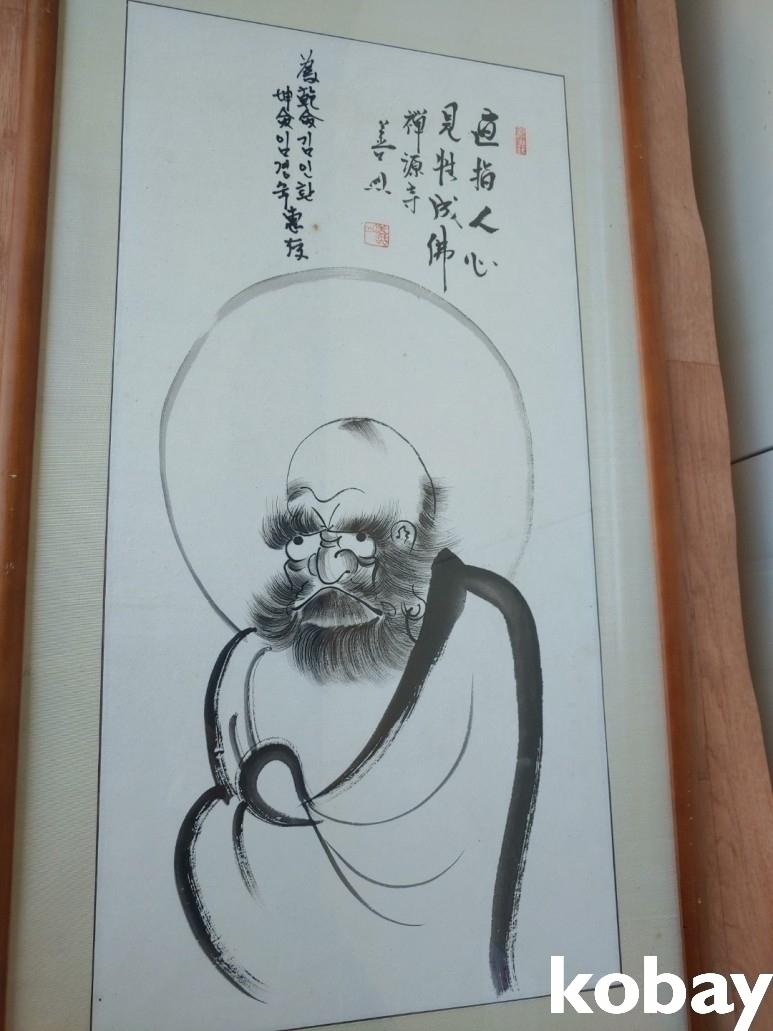 直指人心
見性成佛
禪源寺
善
為乾命김인환
坤命임경숙惠存
kobay